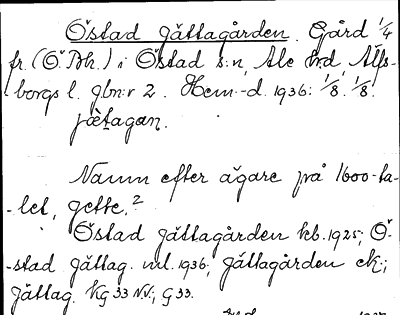 Östad jättagården. Gård 1/4
fr. (Ö. Bh.) i Östad s:n, Ale hrd Älfs-
borgs l. gbn:r 2. Hem.-d. 1936: 1/8. 1/8.
jætagan.
Namn efter ägare på 1600-ta-
-let, Jette.?
Östad Jättagården kb. 1925; Ö-
-stad Jättag. ml. 1936; Jättagården ek;
Jättag. KG 33 NV.; G 33.